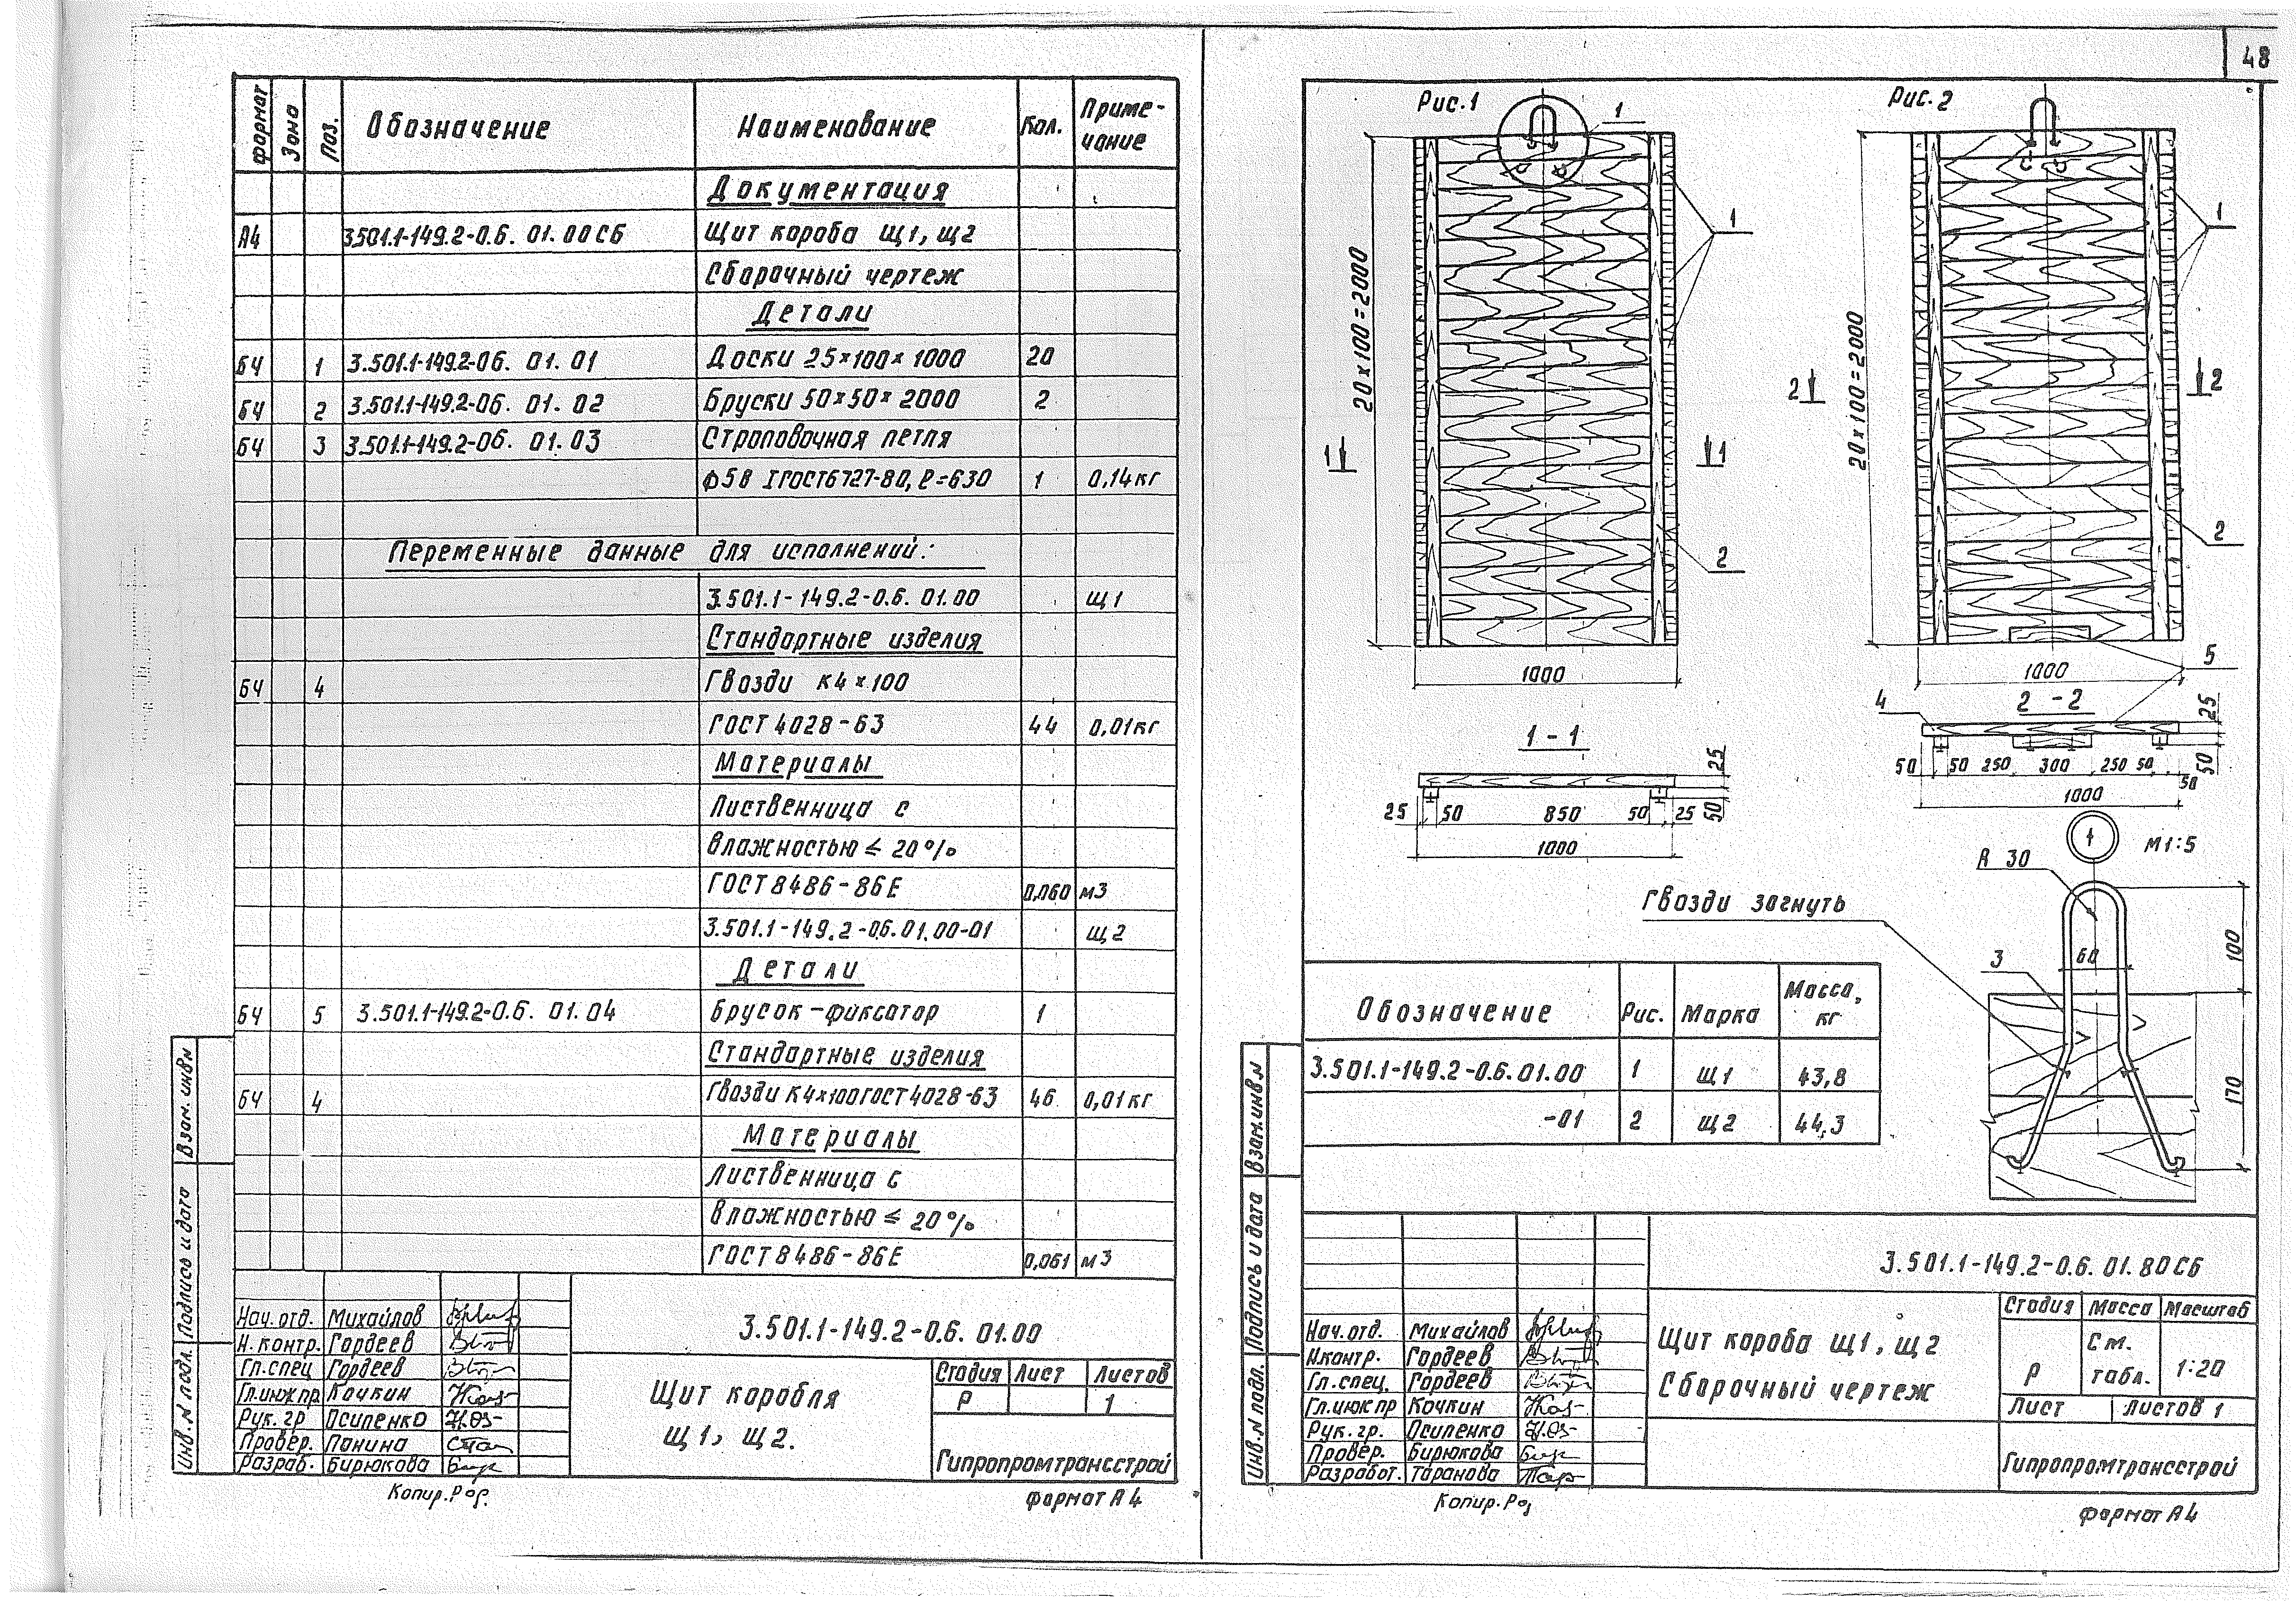 48
формат Зона Поз. Обозначение Наименование Кол. Приме-
чание
Документация
А4 3.501.1-149.2-0.6. 01.00СБ Щит короба Щ1, Щ2
Сборочный чертеж
Детали
БЧ 1 3.501.1-149.2-06. 01. 01 Доски 25×100×1000 20
БЧ 2 3.501.1-149.2-06. 01. 02 Бруски 50×50×2000 2
БЧ 3 3.501.1-149.2-06. 01. 03 Строповочная петля
ф5В I ГОСТ6727-80, ℓ=630 1 0,14кг
Переменные данные для исполнений:
3.501.1-149.2-0.6. 01.00 Щ1
Стандартные изделия
БЧ 4 Гвозди К4×100
ГОСТ 4028-63 44 0,01кг
Материалы
Лиственница с
влажностью ≤ 20%
ГОСТ 8486-86Е 0,060 м3
3.501.1-149.2-0.6.01.00-01 Щ2
Детали
БЧ 5 3.501.1-149.2-0.6. 01.04 Брусок-фиксатор 1
Стандартные изделия
БЧ 4 Гвозди К4×100ГОСТ4028-63 46 0,01кг
Материалы
Лиственница с
влажностью ≤ 20%
ГОСТ 8486-86Е 0,061 м3
Взам. инв.N
Подпись и дата
Инв. N подл.
Нач. отд. Михайлов
Н. контр. Гордеев
Гл.спец Гордеев
Гл.инж.пр. Кочкин
Рук. гр Осипенко
Провер. Панина
Разраб. Бирюкова
3.501.1-149.2-0.6. 01.00
Щит коробля
Щ1, Щ2.
Стадия Лист Листов
Р 1
Гипропромтрансстрой
Копир.
формат А4
Рис.1
1
20×100=2000
1
1 1
2
1000
1-1
25
25 50 850 50 25 50
1000
Рис. 2
1
20×100=2000
2 2
2
5
1000
2-2
4
25
50 50 250 300 250 50 50 50
1000
1 М1:5
R 30
Гвозди загнуть
3
60
100
170
Обозначение Рис. Марка Масса, кг
3.501.1-149.2-0.6.01.00 1 Щ1 43,8
-01 2 Щ2 44,3
Взам.инв.N
Подпись и дата
Инв. N подл.
3.501.1-149.2-0.6. 01. 80СБ
Нач.отд. Михайлов
Н.контр. Гордеев
Гл.спец. Гордеев
Гл.инж пр Кочкин
Рук. гр. Осипенко
Провер. Бирюкова
Разработ. Таранова
Щит короба Щ1, Щ2
Сборочный чертеж
Стадия Масса Масштаб
Р См. табл. 1:20
Лист Листов 1
Гипропромтрансстрой
Копир.
формат А4